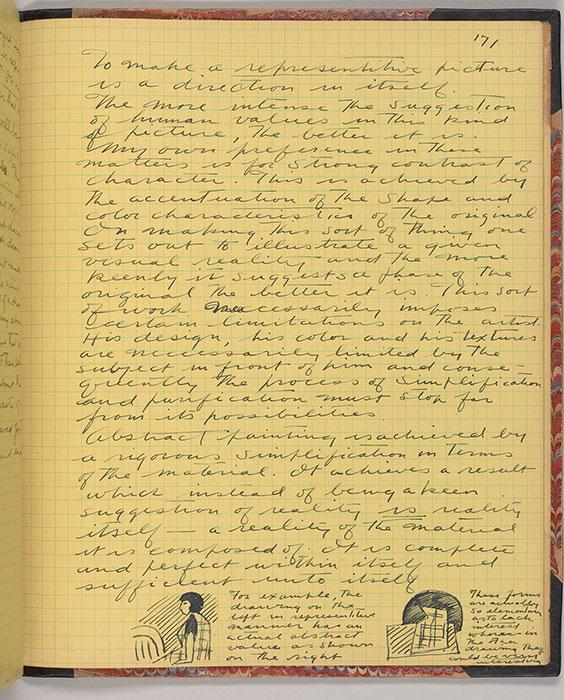 171
To make a representitive picture
is a direction in itself.
The more intense the suggestion
of human values in this kind
of picture, the better it is.
My own preference in these
matters is for strong contrast of
character. This is achieved by
the accentuation of the shape and
color characteristics of the original
In making this sort of thing one
sets out to illustrate a given
visual reality and the more
keenly it suggests a phase of the
original the better it is. This sort
of work necessarily imposes
certain limitations on the artist.
His design, his color and his textures
are neccessarily limited by the
subject in front of him and conse-
quently the process of simplification
and purification must stop far
from its possibilities
Abstract painting is achieved by
a rigorous simplification in terms
of the material. It achieves a result
which instead of being a keen
suggestion of reality is reality
itself — a reality of the material
it is composed of. It is complete
and perfect within itself and
sufficient unto itself
For example, the
drawing on the
left in representitive
manner has an
actual abstract
value as shown
on the right
These forms
are actually
so elementary
as to lack
interest
whereas in
the
drawing they
could be very
interesting